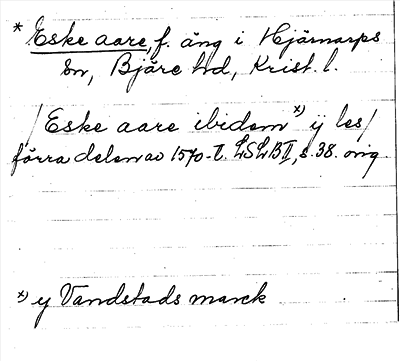 * Eske aare, f. äng i Hjärnarps
sn, Bjäre hd, Krist. l.
/Eske aare ibidem x) ij les/
förra delen av 1570-t. LSLB II, s. 38. orig.
x) y Vandstads marck